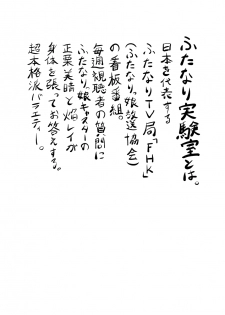 ふたなり実験室とは。
日本を代表する
ふたなりTV局「FHK」
(ふたなりっ娘放送協会)
の看板番組。
毎週視聴者の質問に
ふたなりっ娘キャスターの
正菜美晴と焔レイが
身体を張ってお答えする。
超本格派バラエティー。